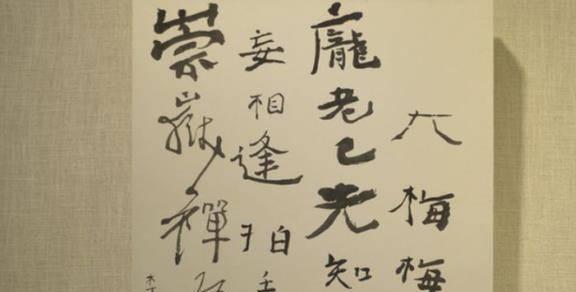 大梅梅
龐老已先知
妄相逢拍手
崇嶽禪